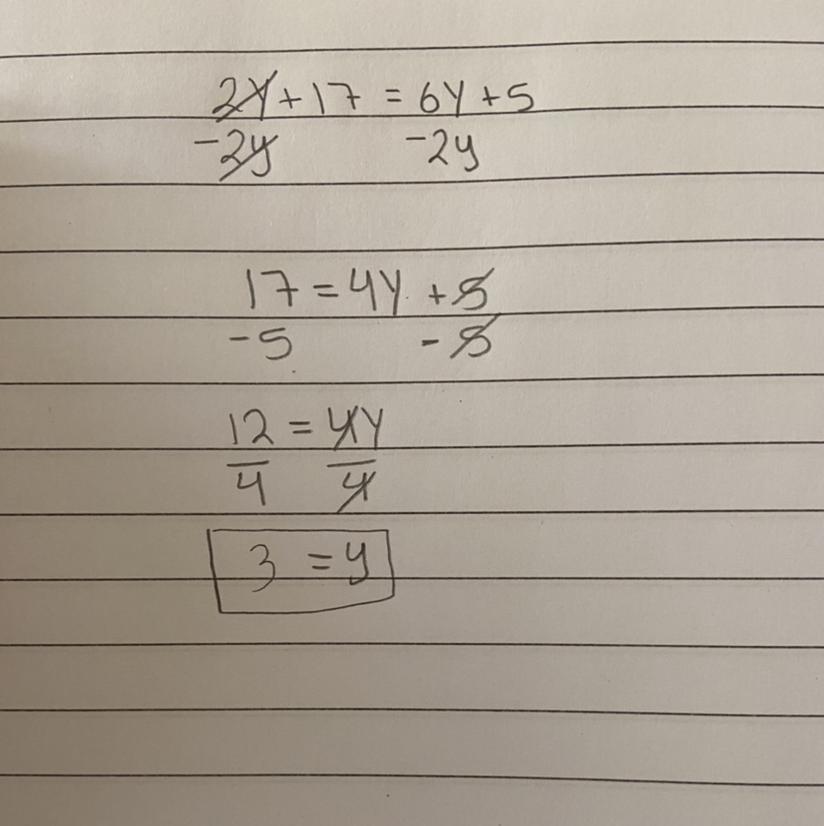 2y+17 = 6y+5
-2y -2y
17 = 4y +5
-5 -5
12 = 4y
4 4
3 = y